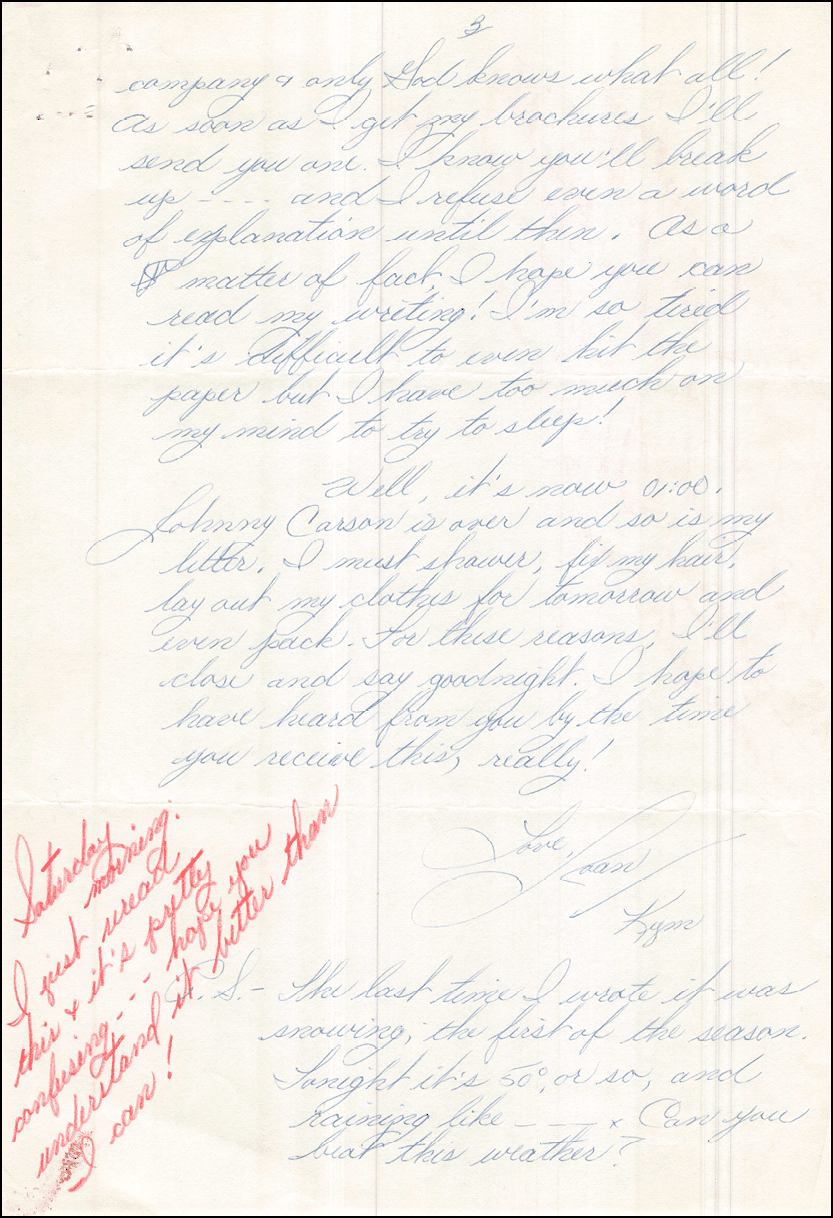 3
company & only God knows what all!
As soon as I get my brochures I'll
send you one. I know you'll break
up - - - - and I refuse even a word
of explanation until then. As a
matter of fact, I hope you can
read my writing! I'm so tired
it's difficult to even hit the
paper but I have too much on
my mind to try to sleep!
Well, it's now 01:00.
Johnny Carson is over and so is my
letter. I must shower, fix my hair,
lay out my clothes for tomorrow and
even pack. For these reasons, I'll
close and say goodnight. I hope to
have heard from you by the time
you receive this, really!
Love,
Joan
Kym
P.S. - The last time I wrote it was
snowing; the first of the season.
Tonight it's 50°, or so, and
raining like - - - x Can you
beat this weather?
Saturday
morning.
I just reread
this & it's pretty
confusing - - - hope you
understand it better than
I can!